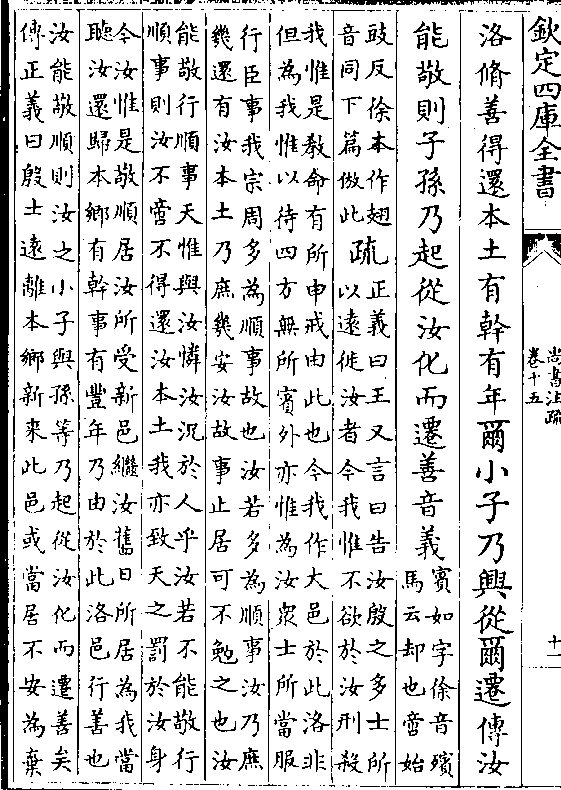 欽定四庫全書
尚書注疏
卷十五
十一
洛脩善得還本土有幹有年爾小子乃興從爾遷傳汝
能敬則子孫乃起從汝化而遷善音義
賓如字徐音殯
馬云却也啻始
豉反徐本作翅
音同下篇倣此
疏
正義曰王又言曰告汝殷之多士所
以遠徙汝者今我惟不欲於汝刑殺
我惟是敎命有所申戒由此也今我作大邑於此洛非
但為我惟以待四方無所賓外亦惟為汝衆士所當服
行臣事我宗周多為順事故也汝若多為順事汝乃庶
幾還有汝本土乃庶幾安汝故事止居可不勉之也汝
能敬行順事天惟與汝憐汝況於人乎汝若不能敬行
順事則汝不啻不得還汝本土我亦致天之罰於汝身
今汝惟是敬順居汝所受新邑繼汝舊日所居為我當
聽汝還歸本鄉有幹事有豐年乃由於此洛邑行善也
汝能敬順則汝之小子與孫等乃起從汝化而遷善矣
傳正義曰殷士遠離本鄉新來此邑或當居不安為棄